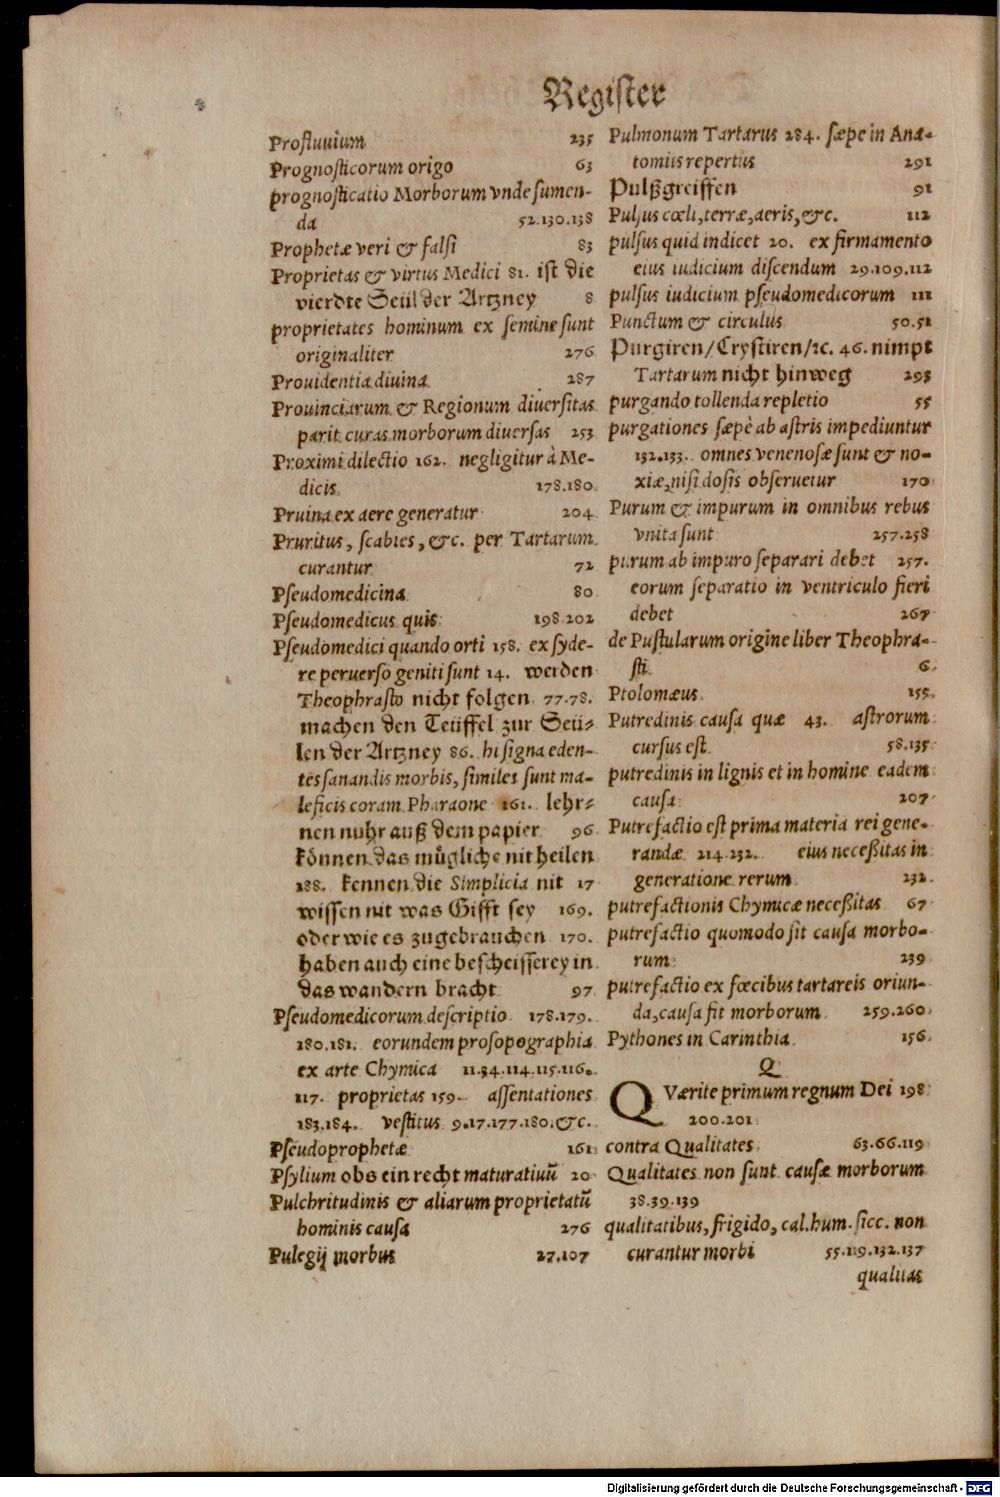 Register
Profluuium 235
Prognosticorum origo 63
prognosticatio Morborum vnde sumen-
da 52.130.138
Prophetæ veri & falsi 83
Proprietas & virtus Medici 81. ist die
vierdte Seül der Artzney 8
proprietates hominum ex semine sunt
originaliter 276
Prouidentia diuina 287
Prouinciarum & Regionum diuersitas
parit curas morborum diuersas 253
Proximi dilectio 162. negligitur à Me-
dicis 178.180
Pruina ex aere generatur 204
Pruritus, scabies, &c. per Tartarum
curantur 72
Pseudomedicina 80
Pseudomedicus quis 198.202
Pseudomedici quando orti 158. ex syde-
re peruerso geniti sunt 14. werden
Theophrasto nicht folgen 77.78.
machen den Teüffel zur Seü-
len der Artzney 86. hi signa eden-
tes sanandis morbis, similes sunt ma-
leficis coram Pharaone 161. lehr-
nen nuhr auß dem papier 96
können das mügliche nit heilen
188. kennen die Simplicia nit 17
wissen nit was Gifft sey 169.
oder wie es zugebrauchen 170.
haben auch eine bescheisserey in
das wandern bracht 97
Pseudomedicorum descriptio 178.179.
180.181. eorundem prosopographia
ex arte Chymica 11.34.114.115.116.
117. proprietas 159. assentationes
183.184. vestitus 9.17.177.180.&c.
Pseudoprophetæ 161
Psylium obs ein recht maturatiuū 20
Pulchritudinis & aliarum proprietatū
hominis causa 276
Pulegij morbus 27.107
Pulmonum Tartarus 284. sæpe in Ana-
tomiis repertus 291
Pulßgreiffen 91
Pulsus cœli, terræ, aeris, &c. 112
pulsus quid indicet 20. ex firmamento
eius iudicium discendum 29.109.112
pulsus iudicium pseudomedicorum 111
Punctum & circulus 50.51
Purgiren/Crystiren/ꝛc. 46. nimpt
Tartarum nicht hinweg 293
purgando tollenda repletio 55
purgationes sæpè ab astris impediuntur
132.133. omnes venenosæ sunt & no-
xiæ, nisi dosis obseruetur 170
Purum & impurum in omnibus rebus
vnita sunt 257.258
purum ab impuro separari debet 257.
eorum separatio in ventriculo fieri
debet 267
de Pustularum origine liber Theophra-
sti 6
Ptolomæus 155
Putredinis causa quæ 43. astrorum
cursus est 58.135
putredinis in lignis et in homine eadem
causa 207
Putrefactio est prima materia rei gene-
randæ 214.232. eius neceßitas in
generatione rerum 232.
putrefactionis Chymicæ neceßitas 67
putrefactio quomodo sit causa morbo-
rum 239
putrefactio ex fœcibus tartareis oriun-
da, causa fit morborum 259.260
Pythones in Carinthia 156
Q
QVærite primum regnum Dei 198
200.201
contra Qualitates 63.66.119
Qualitates non sunt causæ morborum
38.39.139
qualitatibus, frigido, cal. hum. sicc. non
curantur morbi 55.119.132.137
qualitas
Digitalisierung gefördert durch die Deutsche Forschungsgemeinschaft - DFG